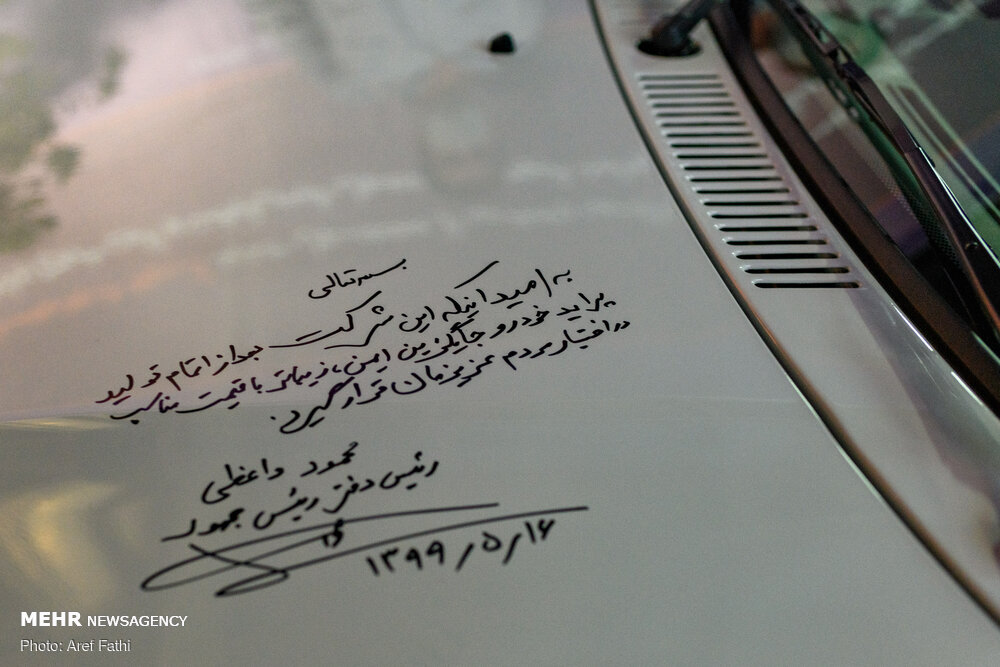 بسمه تعالی
به امید اینکه این شرکت بعد از اتمام تولید
پراید خودرو جایگزین ایمن، زیباتر با قیمت مناسب
در اختیار مردم عزیزمان قرار گیرد.
محمود واعظی
رئیس دفتر رئیس جمهور
۱۳۹۹/۵/۱۶
MEHR NEWSAGENCY
Photo: Aref Fathi